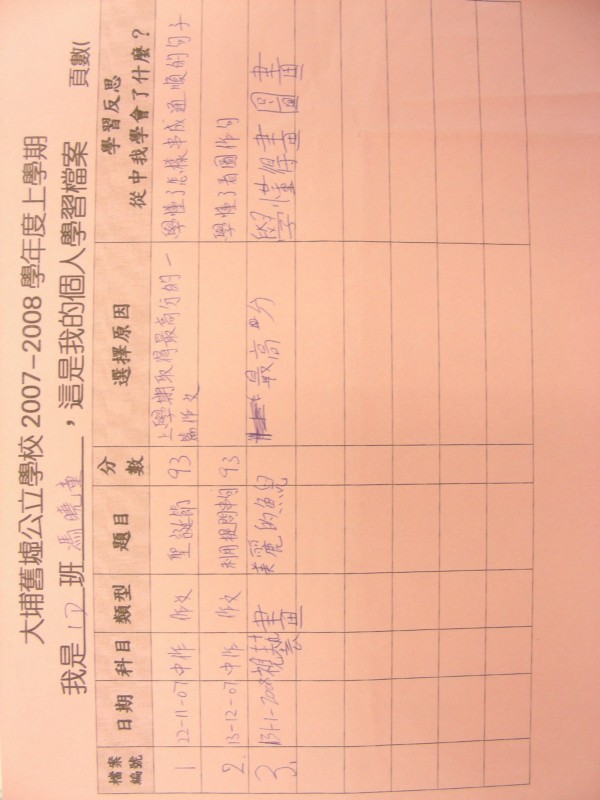 大埔舊墟公立學校 2007-2008 學年度上學期
我是 1D 班 馮曉東 ，這是我的個人學習檔案 頁數(
檔案編號 日期 科目 類型 題目 分數 選擇原因 學習反思 從中我學會了什麼？
1 22-11-07 中作 作文 聖誕節 93 上學期取得最高分的一篇作文 學懂了怎樣串成通順的句子
2. 13-12-07 中作 作文 利用提問串句 93 學懂了看圖作句
3. 13-1-2008 視藝 畫 美麗的魚兒 最高分 學懂得畫圖畫